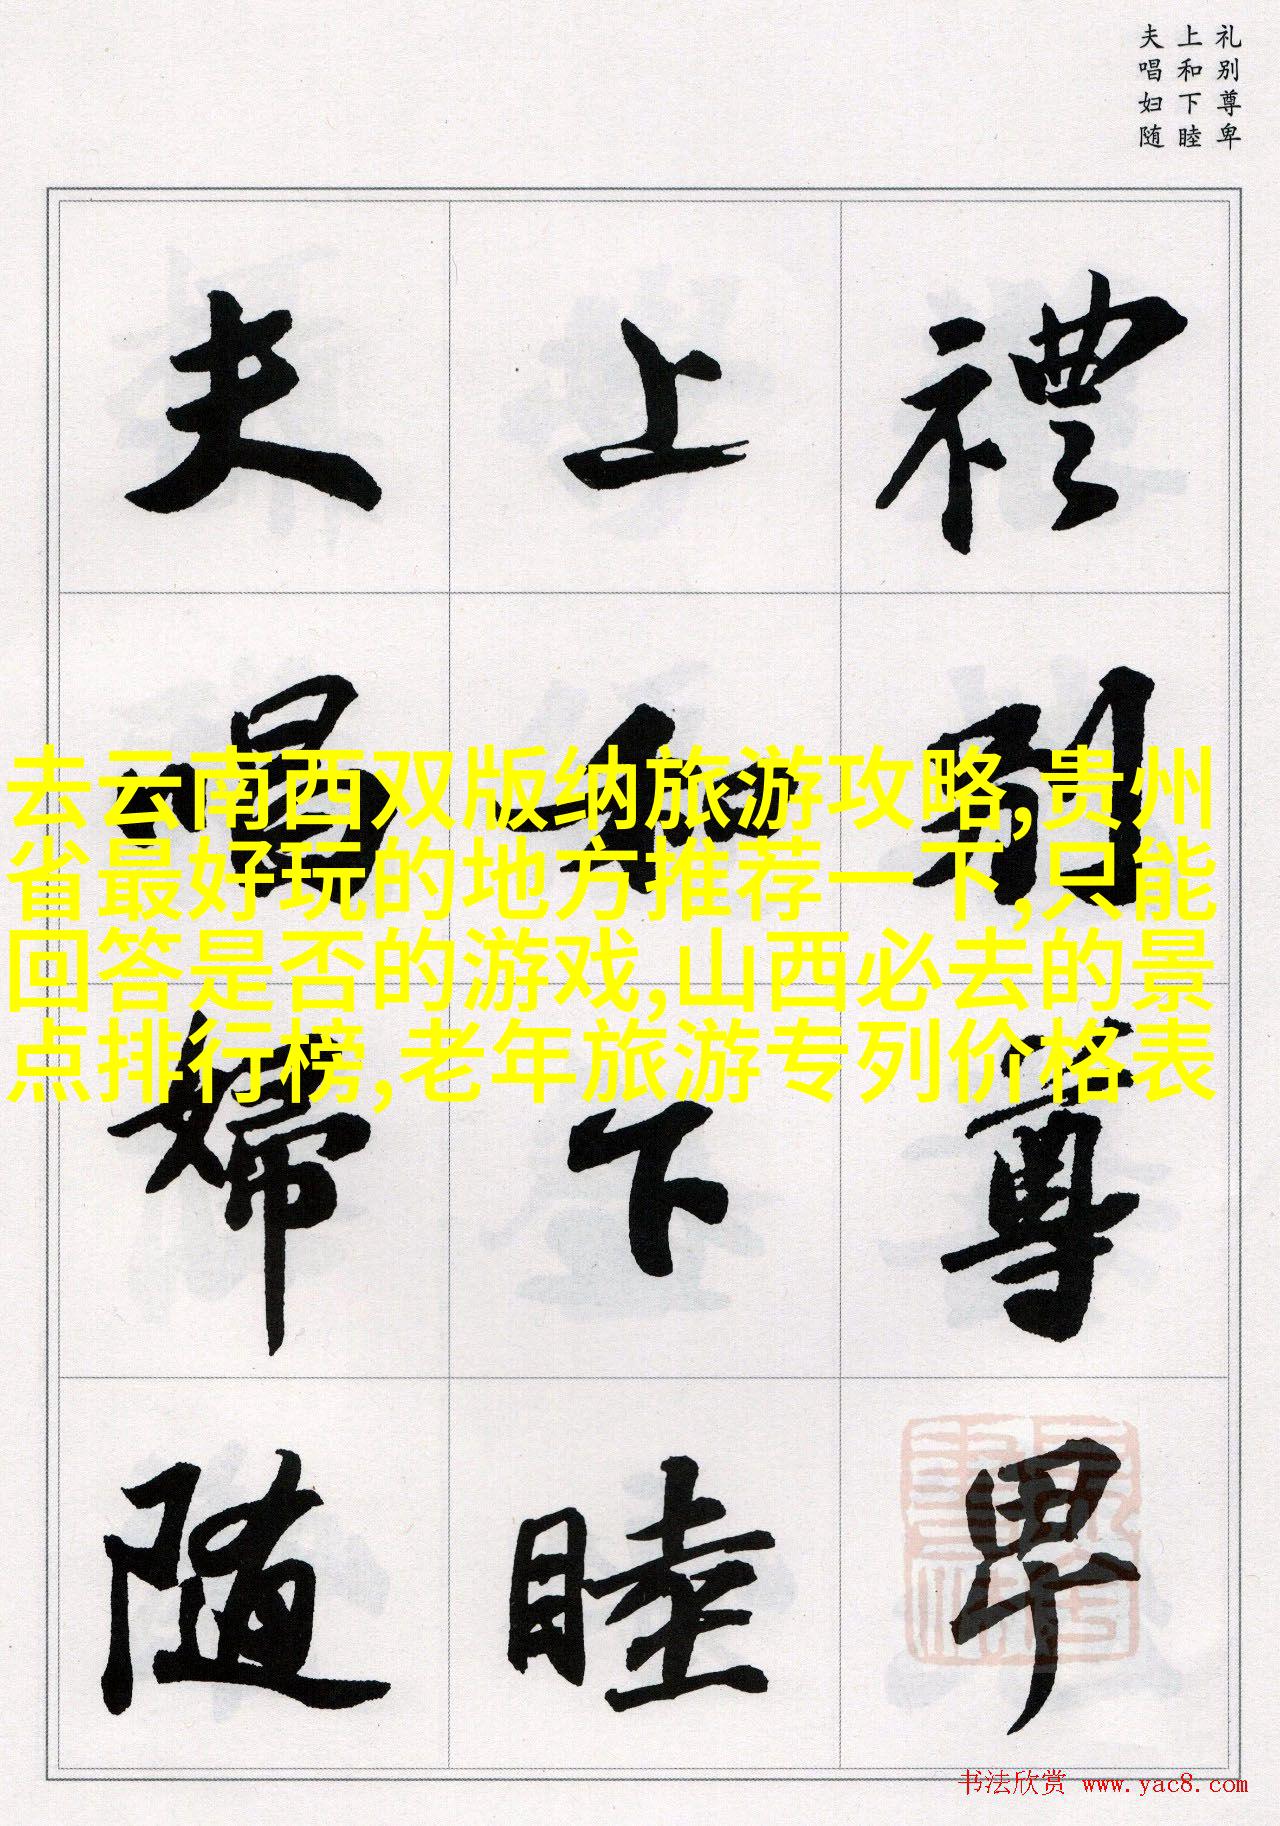 礼别尊卑
上和下睦
夫唱妇随
禮别尊卑
上和下睦
夫唱婦随
去云南西双版纳旅游攻略,贵州
省最好玩的地方推荐一下,只能
回答是否的游戏,山西必去的景
点排行榜,老年旅游专列价格表
书法欣赏 www.yac8.com